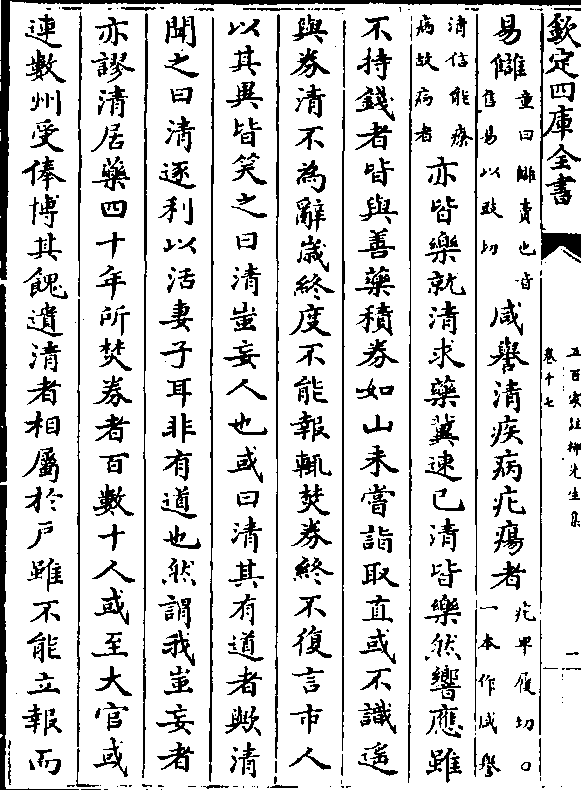 欽定四庫全書
五百家註柳先生集
卷十七
一
易讎童曰讎賣也音售易以豉切咸譽清疾病疕瘍者疕卑履切〇一本作咸譽
清信能療病故病者亦皆樂就清求藥冀速已清皆樂然響應雖
不持錢者皆與善藥積券如山未嘗詣取直或不識遥
與券清不為辭歲終度不能報輒焚券終不復言市人
以其異皆笑之曰清蚩妄人也或曰清其有道者歟清
聞之曰清逐利以活妻子耳非有道也然謂我蚩妄者
亦謬清居藥四十年所焚券者百數十人或至大官或
連數州受俸博其餽遺清者相屬於戶雖不能立報而